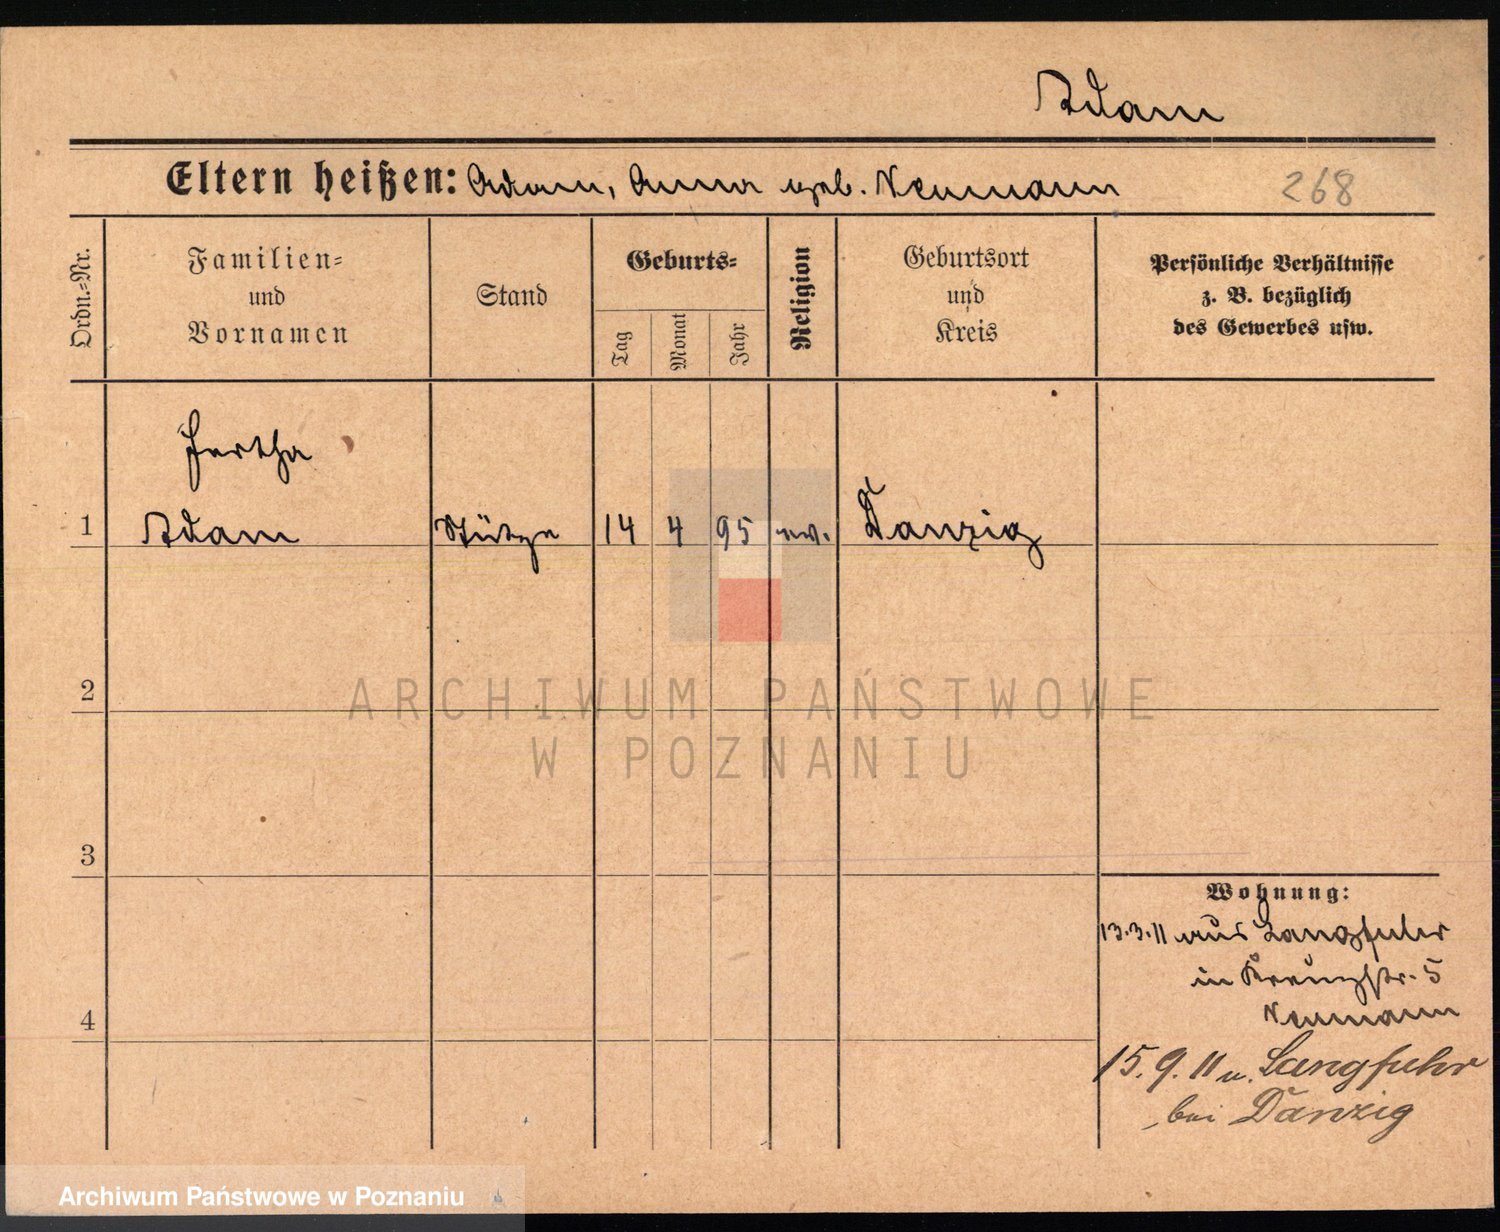 Adam
Eltern heißen: Adam, Anna geb. Neumann
268
Ordn.-Nr.
Familien-
und
Vornamen
Stand
Geburts-
Tag
Monat
Jahr
Religion
Geburtsort
und
Kreis
Persönliche Verhältnisse
z. B. bezüglich
des Gewerbes usw.
Hertha
1 Adam Stütze 14 4 95 ev. Danzig
2
ARCHIWUM PAŃSTWOWE
W POZNANIU
3
Wohnung:
13.3.11 aus Langfuhr
in Kreuzstr. 5
4
Neumann
15.9.11 n. Langfuhr
bei Danzig
Archiwum Państwowe w Poznaniu